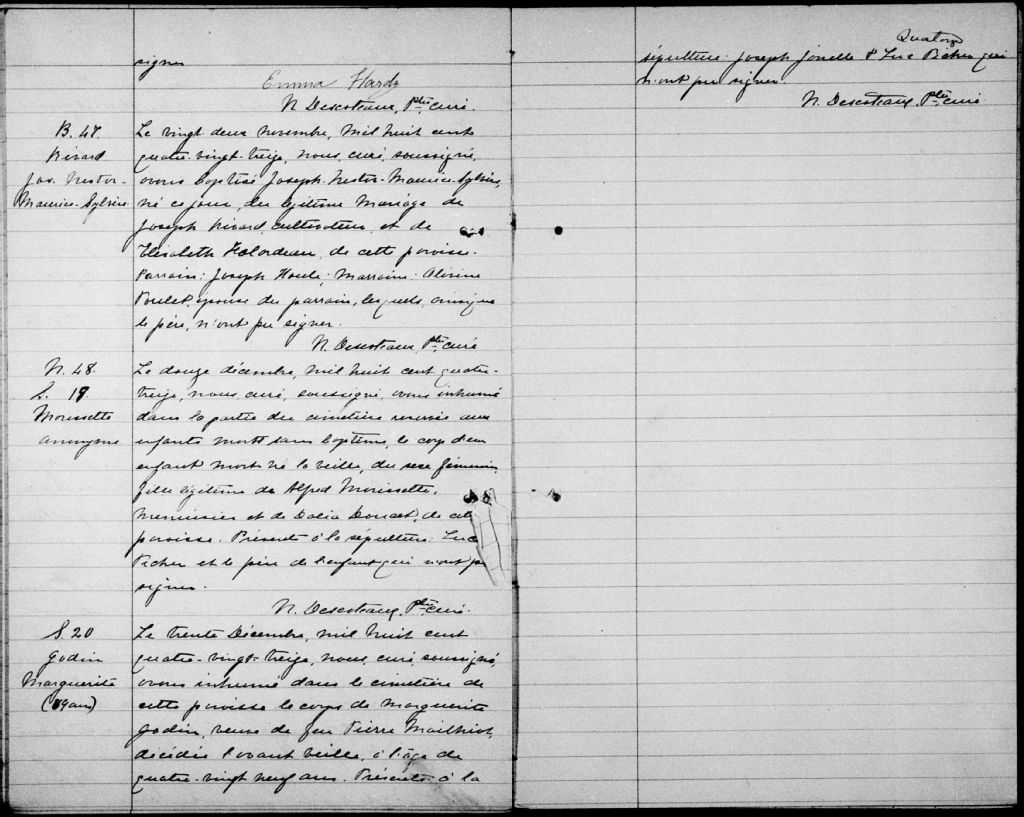 signer
Emma Hardy
N. Descoteaux, Ptre curé.
B. 47.
Rivard
Jos. Nestor-
Maurice-Sylvère
Le vingt deux novembre, mil huit cent
quatre-vingt-treize, nous, curé, soussigné,
avons baptisé Joseph-Nestor-Maurice-Sylvère,
né ce jour, du légitime mariage de
Joseph Rivard, cultivateur, et de
Elisabeth, de cette paroisse.
Parrain: Joseph Houle; Marraine:
épouse du parrain, lesquels, ainsi que
le père, n'ont pu signer.
N. Descoteaux, Ptre curé
N. 48.
S. 19.
Morissette
anonyme
Le douze décembre, mil huit cent quatre-
treize, nous, curé, soussigné, avons inhumé
dans la partie du cimetière réservée aux
enfants morts sans baptême, le corps d'un
enfant mort-né la veille, du sexe féminin,
fille légitime de Alfred Morissette,
menuisier et de Doucet, de cette
paroisse. Présents à la sépulture: Luc
Picher et le père de l'enfant qui n'ont pu
signer.
N. Descoteaux, Ptre curé.
S. 20
Godin
Marguerite
(89 ans)
Le trente Décembre, mil huit cent
quatre-vingt-treize, nous, curé, soussigné,
avons inhumé dans le cimetière de
cette paroisse le corps de Marguerite
Godin, veuve de feu Pierre Mailhiot,
décédée l'avant veille, à l'âge de
quatre-vingt neuf ans. Présents à la
Quatorze
sépulture: Joseph & Luc Picher qui
n'ont pu signer.
N. Descoteaux, Ptre curé